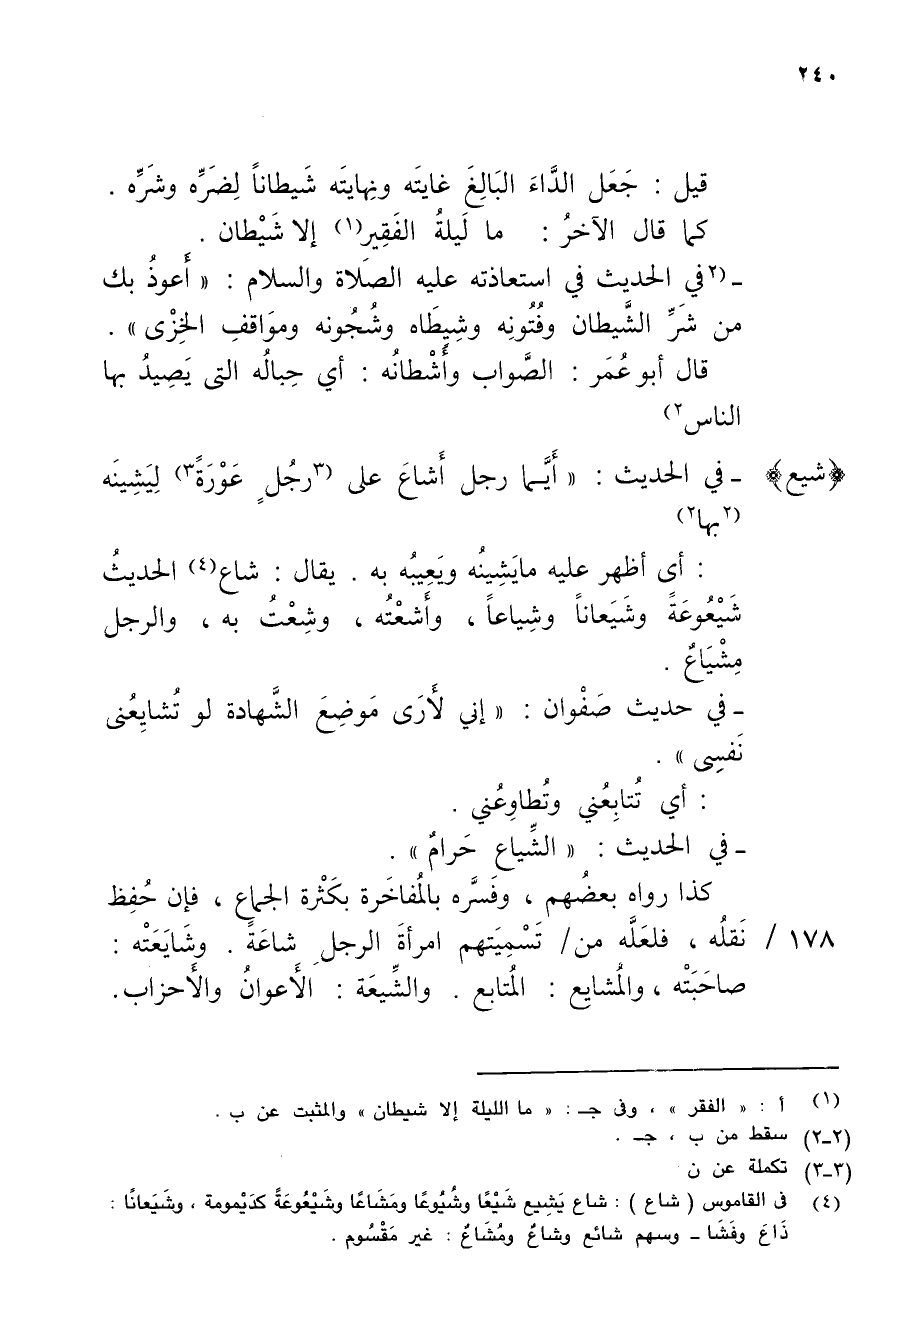 ٢٤٠
قيل : جَعَل الدَّاءَ البَالِغَ غايتَه ونِهايتَه شَيطاناً لِضَرِّه وشَرِّه .
كما قال الآخرُ : ما لَيلةُ الفَقِير(١) إلا شَيْطان .
ـ (٢في الحديث في استعاذته عليه الصّلاة والسلام : « أَعوذُ بك
من شَرِّ الشَّيطان وفُتُونِه وشِيطَاه وشُجُونه ومَوَاقفِ الخِزْى » .
قال أبو عُمَر : الصَّواب وأَشْطانُه : أي حِبالُه التى يَصِيدُ بها
الناس٢)
﴿شيع﴾ ـ في الحديث : « أَيَّما رجل أَشاعَ على (٣رجُلٍ عَوْرَةً٣) لِيَشِينَه
(٢بها٢)
: أى أظهر عليه مايَشِينُه ويَعِيبُه به . يقال : شاع(٤) الحديثُ
شَيْعُوعَةً وشَيَعاناً وشِياعاً ، وأَشعْتُه ، وشِعْتُ به ، والرجل
مِشْيَاعٌ .
ـ في حديث صَفْوان : « إني لَأَرَى مَوضِعَ الشَّهادة لو تُشايِعُنى
نَفسِى » .
: أي تُتابِعُني وتُطاوِعُني .
ـ في الحديث : « الشِّياع حَرامٌ » .
كذا رواه بعضُهم ، وفَسَّره بالمُفاخَرة بكَثْرة الجماع ، فإن حُفِظ
١٧٨ / نَقلُه ، فلعَلَّه من/ تَسْمِيَتهم امرأةَ الرجلِ شاعَةً . وشَايَعَتْه :
صاحَبَتْه ، والمُشايع : المُتابع . والشِّيعَة : الأَعوانُ والأَحزاب.
(١) أ : « الفقر » ، وفى جـ : « ما الليلة إلا شيطان » والمثبت عن ب .
(٢ـ٢) سقط من ب ، جـ .
(٣ـ٣) تكملة عن ن
(٤) فى القاموس ( شاع ) : شاع يَشِيع شَيْعًا وشُيُوعًا ومَشَاعًا وشَيْعُوعَةً كدَيْمومة ، وشَيَعانًا :
ذَاعَ وفَشَا ـ وسهم شائع وشاعٌ ومُشَاعٌ : غير مَقْسُوم .